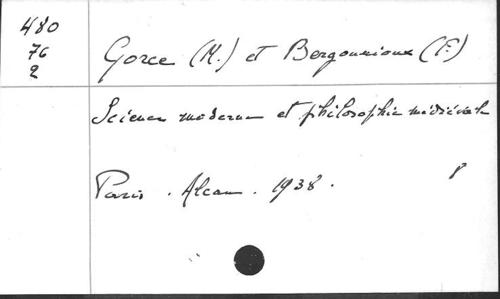 480
76
2
Gorce (M.) et Bergounioux (F.)
Science moderne et philosophie médiévale
Paris . Alcan . 1938 .